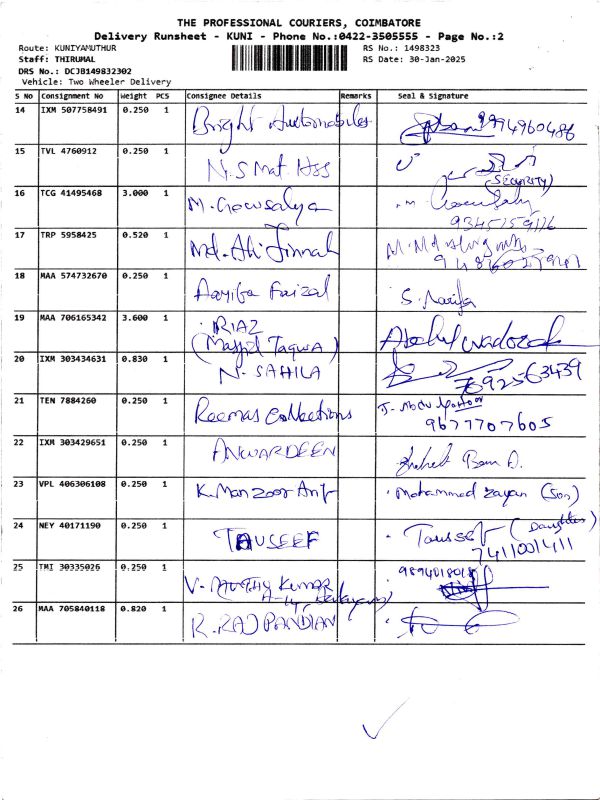 THE PROFESSIONAL COURIERS, COIMBATORE
Delivery Runsheet - KUNI - Phone No.:0422-3505555 - Page No.:2
Route: KUNIYAMUTHUR RS No.: 1498323
Staff: THIRUMAL RS Date: 30-Jan-2025
DRS No.: DCJB149832302
Vehicle: Two Wheeler Delivery
S No Consignment No Weight PCS Consignee Details Remarks Seal & Signature
14 IXM 507758491 0.250 1 Bright Automobiles 9994960486
15 TVL 4760912 0.250 1 N.S Mat. Hss
(SECURITY)
16 TCG 41495468 3.000 1 M. Gowsalya
9345759116
17 TRP 5958425 0.520 1 Md. Ali Jinnah
18 MAA 574732670 0.250 1 Aayifa Faizal S.
19 MAA 706165342 3.600 1 RIAZ
(Masjid Taqwa)
20 IXM 303434631 0.830 1 N. SAHILA
21 TEN 7884260 0.250 1 Reemas Collections
9677707605
22 IXM 303429651 0.250 1 ANWARDEEN
23 VPL 406306108 0.250 1 K. Manzoor Arif Mohammed Zayan (Son)
24 NEY 40171190 0.250 1 TAUSEEF Tausef (Daughter)
7411001411
25 TMI 30335026 0.250 1 V. KUMAR 9894018018
26 MAA 705840118 0.820 1 R. RAJ PANDIAN